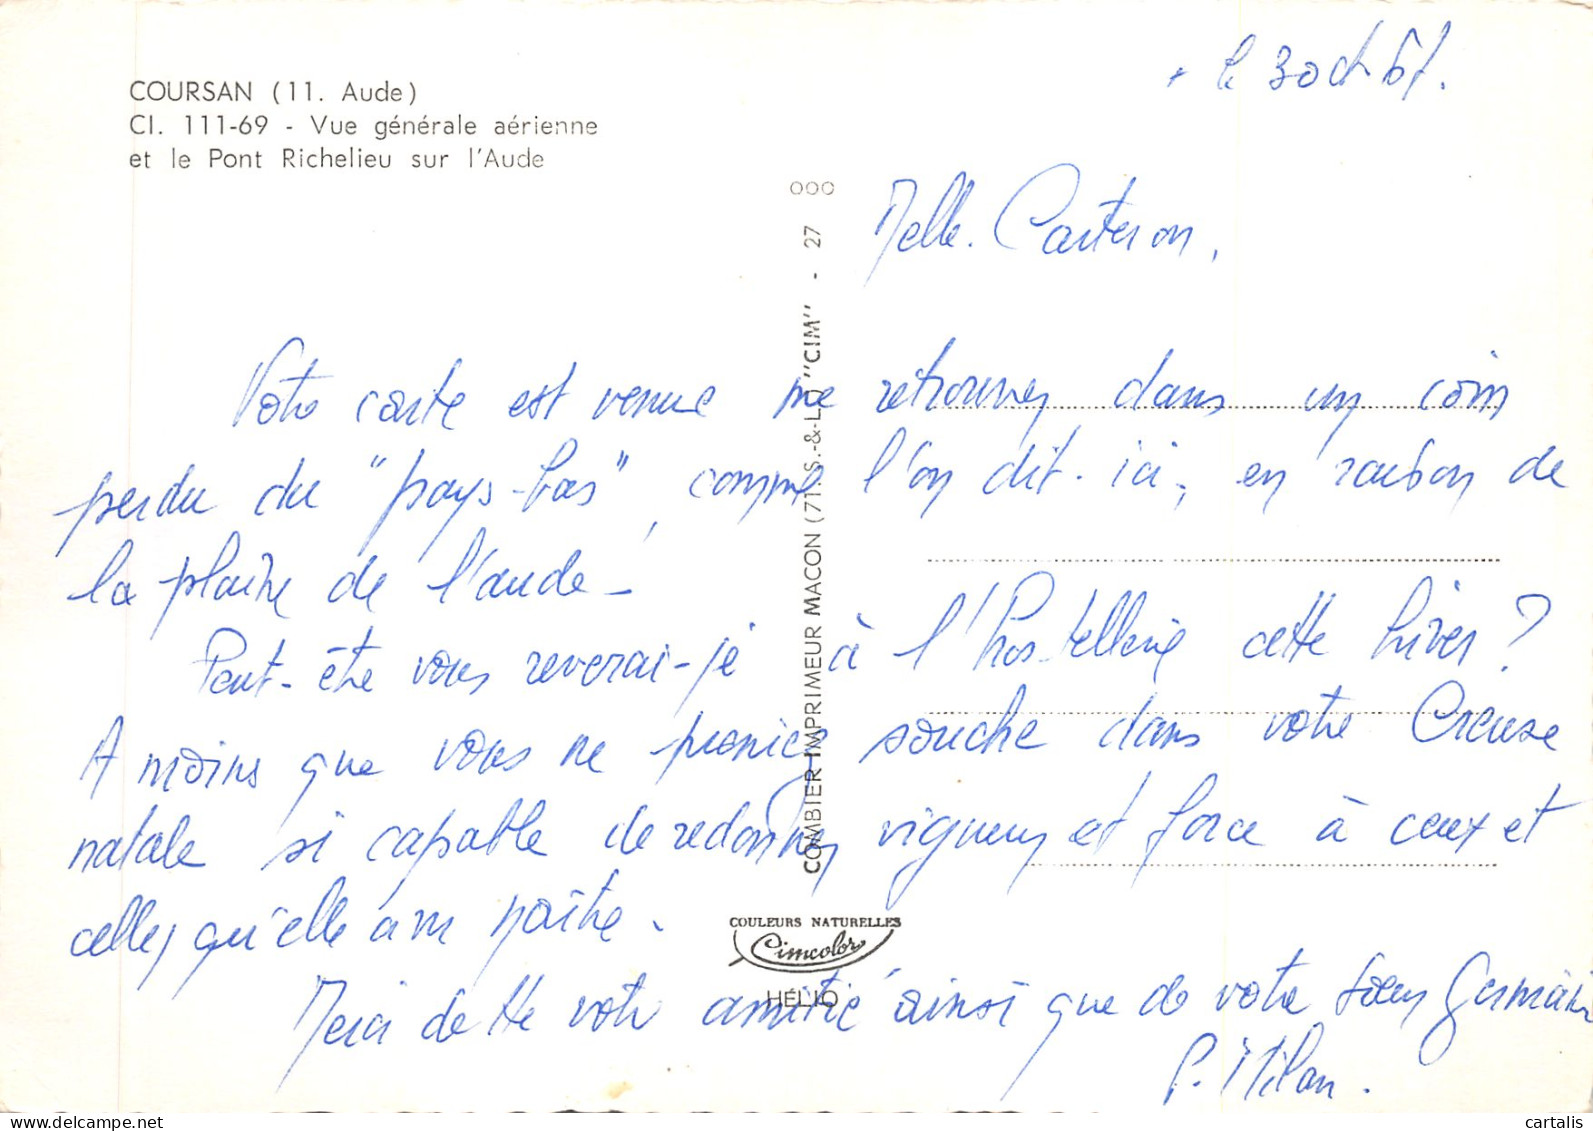 COURSAN (11. Aude)
CI. 111-69 - Vue générale aérienne
et le Pont Richelieu sur l'Aude
le 30 oct 67.
Melle. Carteron,
Votre carte est venue me retrouver dans un coin
perdu du "pays-bas", comme l'on dit. ici, en raison de
la plaine de l'aude-
Peut-être vous reverrai-je à l'Hostellerie cette hiver ?
A moins que vous ne preniez souche dans votre Creuse
natale si capable de redonner vigueur et force à ceux et
celles qu'elle a vu naître.
Merci de tte votre amitié ainsi que de votre soeur Germaine
P. Milan.
COMBIER IMPRIMEUR MACON (71 S.-&-L.) "CIM" - 27 000
COULEURS NATURELLES
Cimcolor
HÉLIO
cartalis
www.delcampe.net